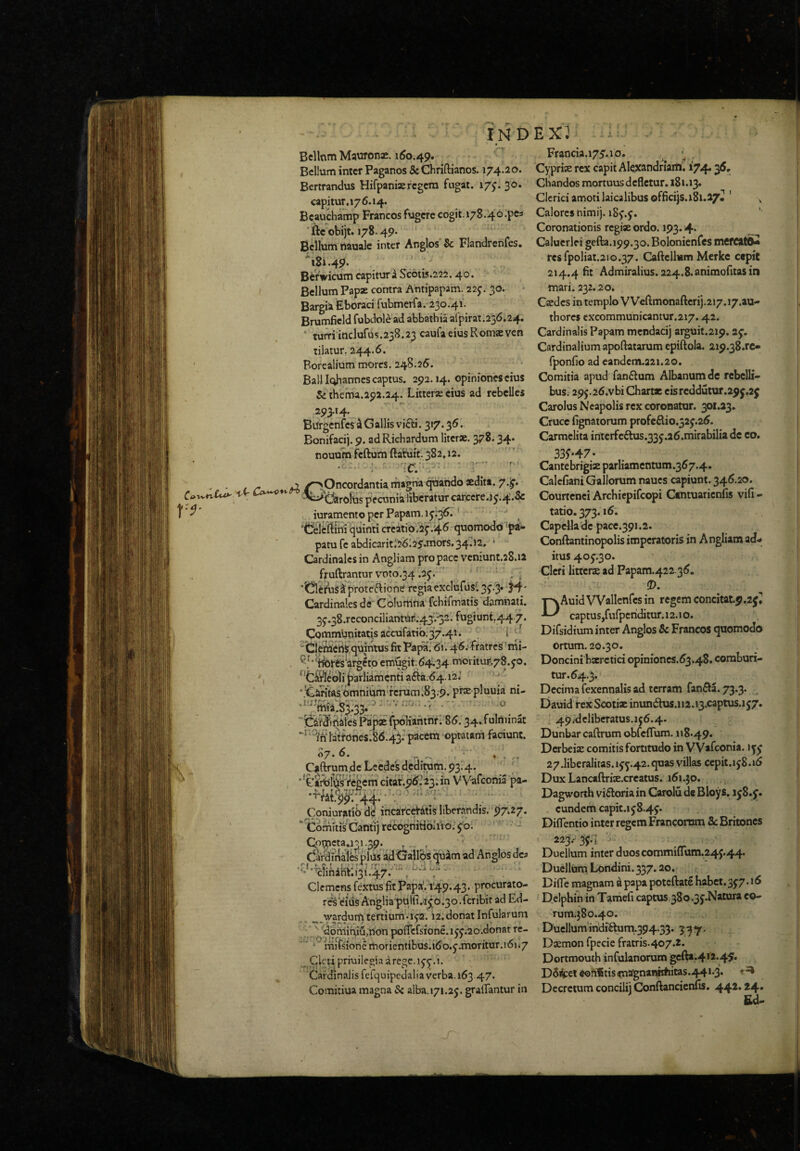 INDEX.
Bellum Mauronæ. 160.49.
Bellum inter Paganos & Christianos. 174.20.
Bertrandus Hispaniæ regem fugat. 175. 30.
capitur.176.14.
Beauchamp Francos fugere cogit.178.40.pes
ste obijt. 178. 49.
Bellum nauale inter Anglos & Flandrenses.
181.49.
Berwicum capitur à Scotis.222. 40.
Bellum Papæ contra Antipapam. 225. 30.
Bargia Eboraci submersa. 230.41.
Brumfield subdolè ad abbathiā aspirat.236.24.
turri inclusus.238.23 causa eius Romæ ven
tilatur. 244.6.
Borealium mores. 248.26.
Ball Iohannes captus. 292. 14. opiniones eius
& thema.292.24. Litteræ eius ad rebelles
293.14.
Burgenses à Gallis victi. 317. 36.
Bonifacij. 9. ad Richardum literæ. 378. 34.
nouum festum statuit. 382.12.
C.
COncordantia magna quando ædita. 7.5.
Carolus pecunia liberatur carcere.15.4.&
iuramento per Papam. 15.36.
Celestini quinti creatio.25.46 quomodo pa-
patu se abdicarit.26.25.mors. 34.12.
Cardinales in Angliam pro pace veniunt.28.12
frustrantur voto.34.25.
Clerus à protectione regia exclusus. 35.3. 54.
Cardinales de Columna schismatis damnati.
35.38.reconciliantur.43.32. fugiunt.44 7.
Communitatis accusatio. 37.41.
Clemens quintus fit Papa. 61. 46. fratres mi-
nores argēto emūgit.64.34 moritur.78.50.
Carleoli parliamenti acta.64.12.
Caritas omnium rerum.83.9. præ pluuia ni-
mia.83.33.
Cardinales Papæ spoliantnr. 86. 34. fulmināt
in latrones.86.43. pacem optatam faciunt.
87. 6.
Castrum de Leedes deditum. 93.4.
Carolus regem citat.96.23. in Vvasconia pa-
rat.99. 44.
Coniuratio de incarceratis liberandis. 97.27.
Comitis Cantij recognitio.110. 50.
Cometa.131.39.
Cardinales plus ad Gallos quàm ad Anglos de=
clinant.131.47.
Clemens sextus fit Papa. 149.43. procurato-
res eius Anglia pulsi.150.30.scribit ad Ed-
wardum tertium.152. 12. donat Insularum
dominiū, non possessionē.155.20.donat re-
missionē morientibus.160.5.moritur.161.7
Cleti priuilegia à rege.155.1.
Cardinalis sesquipedalia verba.163 47.
Comitiua magna & alba.171.25. grassantur in
Francia.175.10.
Cypriæ rex capit Alexandriam. 174. 36.
Chandos mortuus defletur.181.13.
Clerici amoti laicalibus officijs.181.27.
Calores nimij. 185.5.
Coronationis regiæ ordo. 193. 4.
Caluerlei gesta.199.30. Bolonienses mercato-
res spoliat.210.37. Castellum Merke cepit
214.4 fit Admiralius. 224.8. animositas in
mari. 232. 20.
Cædes in templo VVestmonasterij.217.17.au-
thores excommunicantur.217. 42.
Cardinalis Papam mendacij arguit.219. 25.
Cardinalium apostatarum epistola. 219.38.re-
sponsio ad eandem.221.20.
Comitia apud sanctum Albanum de rebelli-
bus. 295.26.vbi Chartæ eis reddutur.295.25
Carolus Neapolis rex coronatur. 301.23.
Cruce signatorum profectio.325.26.
Carmelita interfectus.335.26.mirabilia de eo.
335.47.
Cantebrigiæ parliamentum.367.4.
Calesiani Gallorum naues capiunt. 346.20.
Courtenei Archiepiscopi Cantuariensis visi-
tatio. 373. 16.
Capella de pace.391.2.
Constantinopolis imperatoris in Angliam ad-
itus 405.30.
Cleri litteræ ad Papam.422.36.
D.
DAuid VVallenses in regem concitat.9.25.
captus,suspenditur.12.10.
Dissidium inter Anglos & Francos quomodo
ortum. 20.30.
Doncini hæretici opiniones.63.48. comburi-
tur.64.3.
Decima sexennalis ad terram sanctā. 73.3.
Dauid rex Scotiæ inunctus.112.13.captus.157.
49.deliberatus.156.4.
Dunbar castrum obsessum. 118.49.
Derbeiæ comitis fortitudo in VVasconia. 155
27.liberalitas.155.42. quas villas cepit.158.16
Dux Lancastriæ.creatus. 161.30.
Dagworth victoria in Carolū de Bloys. 158.5.
eundem capit.158.45.
Dissentio inter regem Francorum & Britones
223. 35.
Duellum inter duos commissum.245.44.
Duellum Londini. 337. 20.
Disse magnam à papa potestatē habet.357.16
Delphin in Tamesi captus 380.35.Natura eo-
rum.380.40.
Duellum indictum.394.33.
Dæmon specie fratris.407.2.
Dortmouth insulanorum gesta.412.45.
comitis magnanimitas.441.3.
Decretum concilij Constanciensis. 442. 24.
Ed-